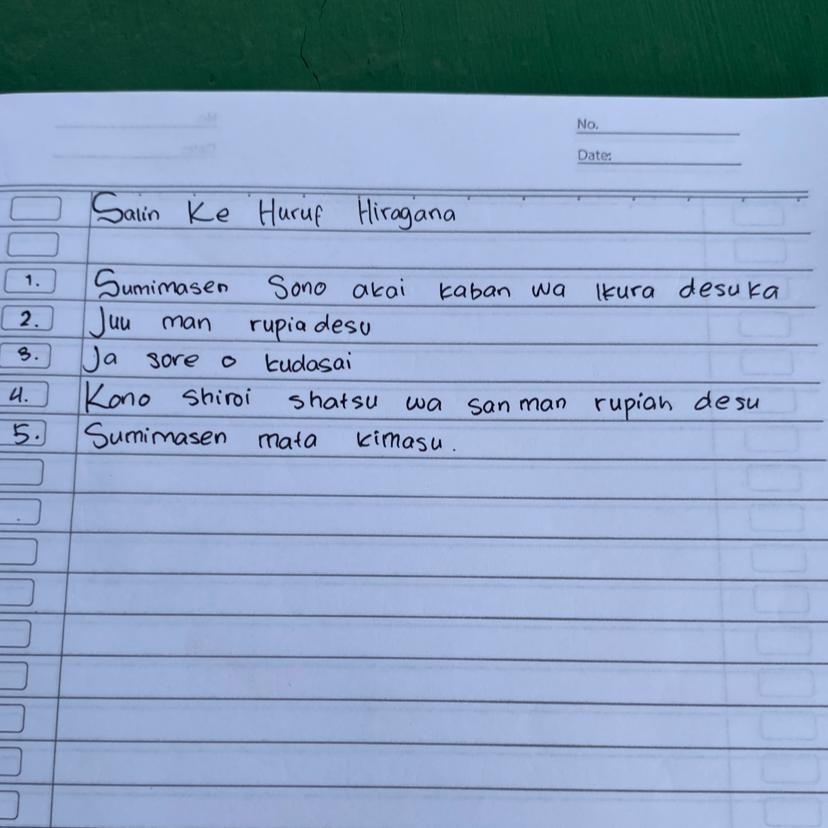 No.
Date:
Salin Ke Huruf Hiragana
1. Sumimasen Sono akai kaban wa Ikura desuka
2. Juu man rupia desu
3. Ja sore o kudasai
4. Kono shiroi shatsu wa san man rupiah desu
5. Sumimasen mata kimasu.